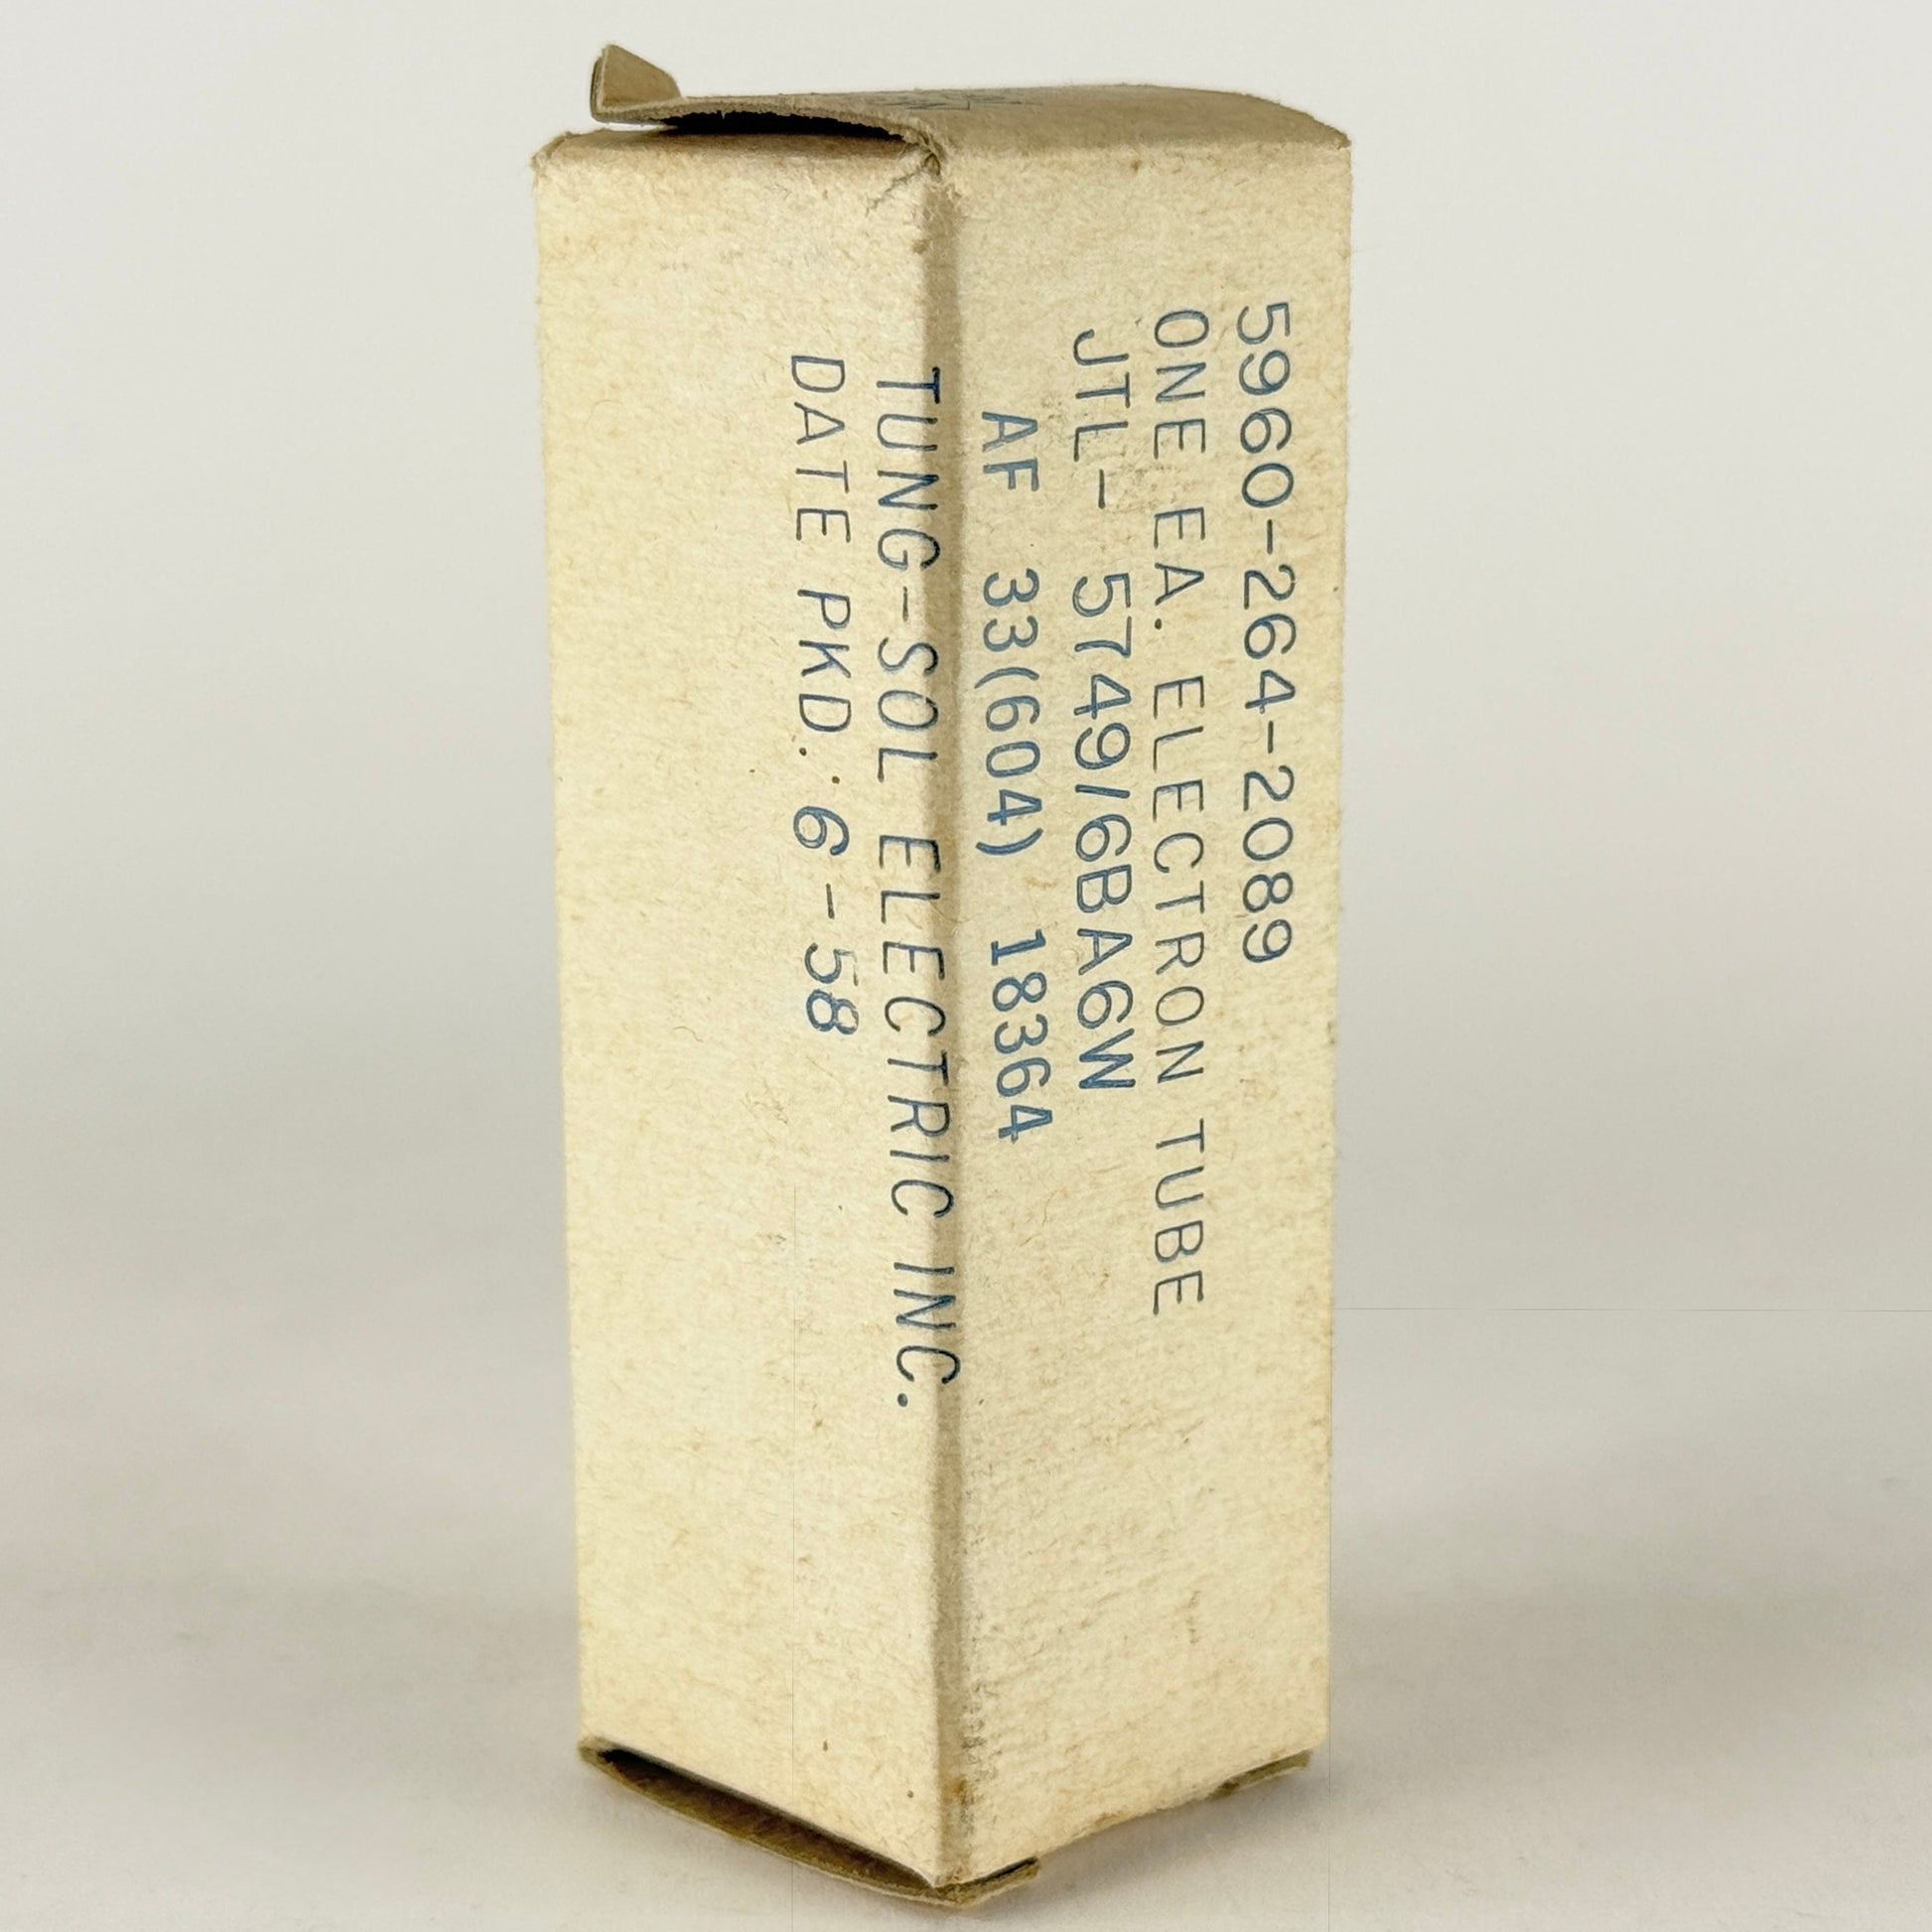 5960-264-2089
ONE EA. ELECTRON TUBE
JTL- 5749/6BA6W
AF 33(604) 18364
TUNG-SOL ELECTRIC INC.
DATE PKD. 6-58